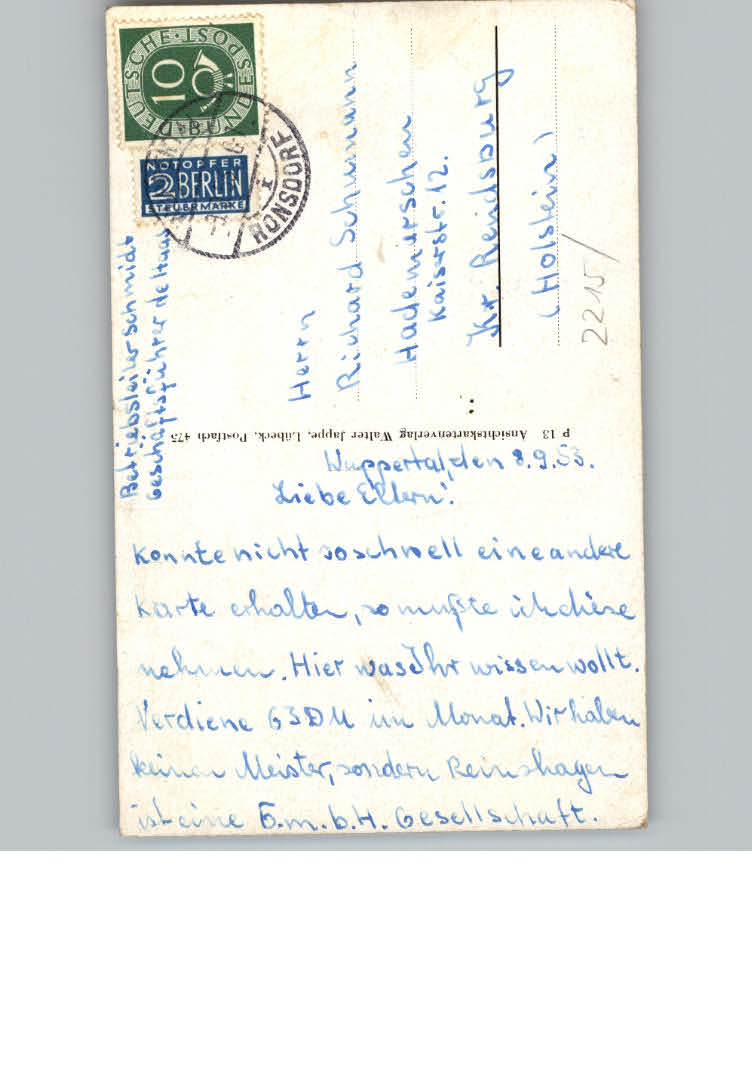 Wuppertal, den 8.9.53.
Liebe Eltern!
Konnte nicht so schnell eine andere
Karte erhalten, so mußte ich diese
nehmen. Hier was Ihr wissen wollt.
Verdiene 63 DM im Monat. Wir haben
keinen Meister, sondern Reinshagen
ist eine G.m.b.H. Gesellschaft.
Betriebsleiter Schmidt
Geschäftsführer de Haas
Herrn
Richard Schumann
Hademarschen
Kaiserstr. 12.
Kr. Rendsburg
(Holstein)
2215/
P 13 Ansichtskartenverlag Walter Jappe, Lübeck, Postfach 475
DEUTSCHE BUNDESPOST
10
NOTOPFER
2 BERLIN
STEUERMARKE
RONSDORF